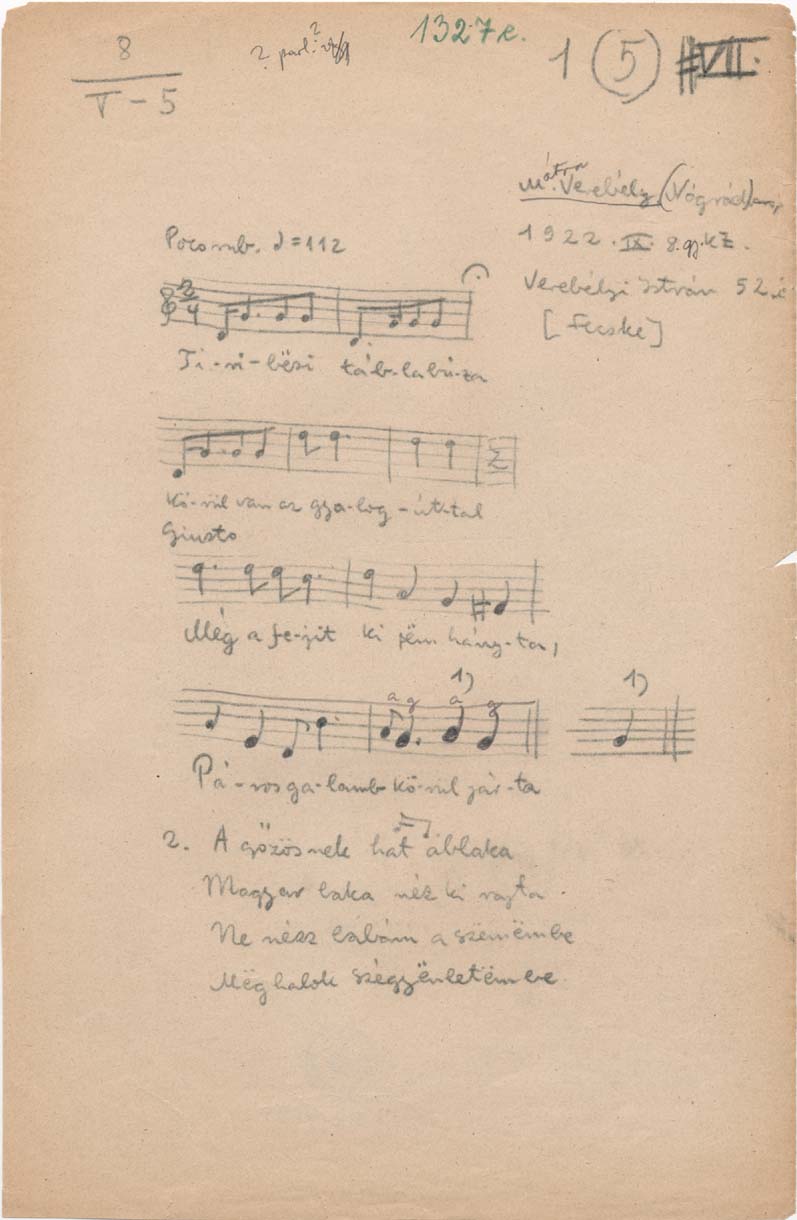 8
V-5
? parl.?
1327e.
1 (5) VII.
Mátra
M. Verebély (Nógrád)
1922. IX. 8. gy. KZ.
Verebélyi István 52. é
[Fecske]
Poco rub. ♩=112
2/4
Ti-ri-bësi táb-la bú-za
Kö-rül van az gya-log-út-tal
Giusto
Még a fe-jit ki sëm hány-ta,
1) 1)
a g a g
Pá-ros ga-lamb kö-rül jár-ta
2. A gőzösnek hat ablaka
Magyar baka néz ki rajta.
Ne nézz babám a szëmëmbe
Mëghalok szégyënletëmbe.